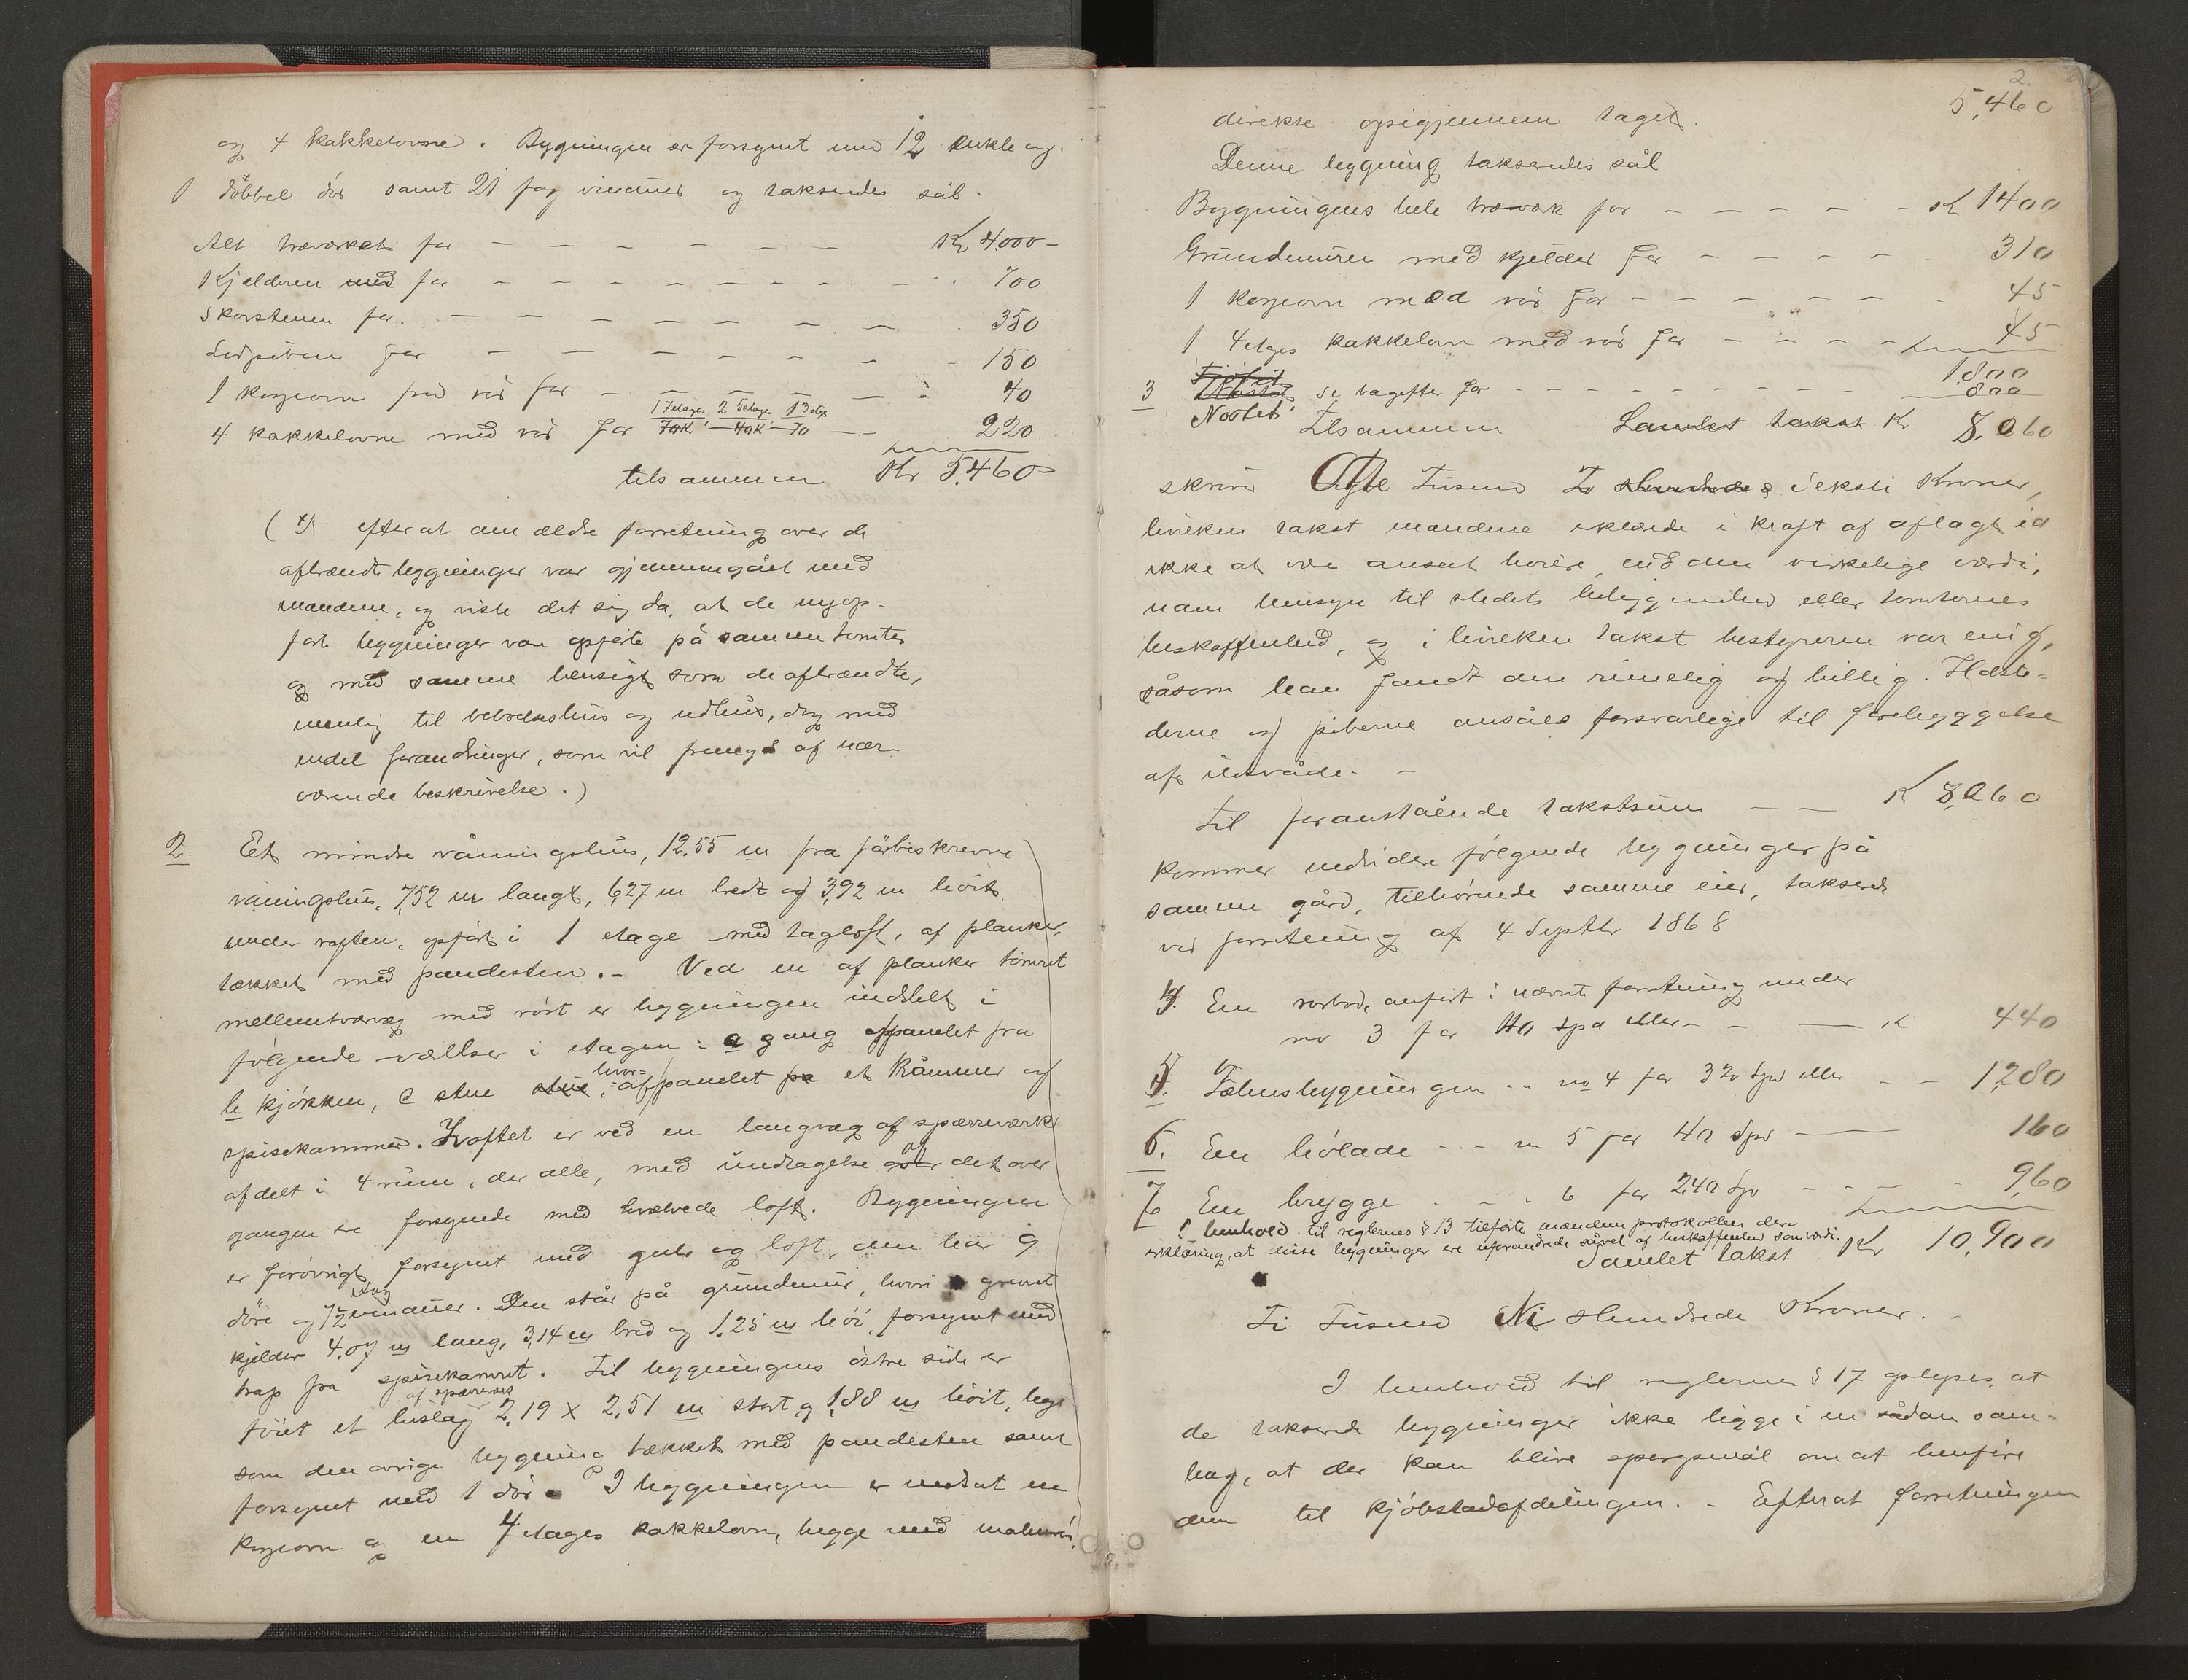 og 4 kakkelovne. Bygningen er forsynt med 12 enkle og
1 dobbel dör samt 21 fag vinduer og takseredes sål.
Alt træværket for - - - - - - - Kr 4000 -
Kjelderen med for - - - - - - - 700
Skorstenen for - - - - - - - 350
for - - - - - - - 150
1 kogeovn med rör for - - - - - 40
1 7etages 2 5etage 1 3etg
4 kakkelovne med rör for 70K - 40K - 70 - - 220
tilsammen Kr 5.460
( efter at den ældre forretning over de
afbrændte bygninger var gjennemgået med
mændene, og viste det sig da, at de nyop-
förte bygninger var opförte på samme tomter
og med samme hensigt som de afbrændte,
nemlig til beboelseshus og udhus, dog med
endel forandringer, som vil fremgå af nær-
værende beskrivelse.)
2. Et mindre våningshus, 12.55 m fra förbeskrevne
våningshus, 7,52 m langt, 6,27 m bredt og 3,92 m höit
under raften, opfört i 1 etage med tagloft, af planker,
tækket med pandesten. - Ved en af planker tömret
mellemtværvæg med röst er bygningen inddelt i
fölgende værelser i etagen: a gang afpanelet fra
b kjökken, c stue stue, hvor- afpanelet fra et kammer og
spisekammer. Loftet er ved en langvæg af sperreværk
afdelt i 4 rum, der alle, med undtagelse over af det over
gangen ere forsynede med hvælvede loft. Bygningen
er forövrigt forsynet med gulv og loft, den har 9
döre og 7½ fag vinduer. Den står på grundmur, hvori gravet
kjelder 4.07 m lang, 3,14 m bred og 1,25 m höi, forsynt med
trap fra spisekamret. Til bygningens östre side er
föiet et bislag af sperreværk 2,19 x 2,51 m stort og 1,88 m höit, lige
som den övrige bygning tækket med pandesten samt
forsynet med 1 dör. I bygningen er indsat en
kogeovn og en 4 etages kakkelovn, begge med
2.
direkte opigjennem taget. 5,460
Denne bygning takseredes sål
Bygningens hele træværk for - - - - - Kr 1400
Grundmuren med kjelder for - - - - 310
1 kogeovn med rör for - - - - - 45
1 4etages kakkelovn med rör for - - - - 45
1.800
3 Naustet se bagefter for - - - - - - - - 800
Tilsammen Samlet takst Kr 8.060
skriver Otte Tusend To Hundrede & Seksti Kroner,
hvilken takst mændene erklærede i kraft af aflagt ed
ikke at være ansat höiere, end den virkelige værdi,
uden hensyn til stedets beliggenhed eller tomternes
beskaffenhed, og i hvilken takst bestyreren var enig,
såsom han fandt den rimelig og billig. Ildste-
derne og piberne ansåes forsvarlige til forebyggelse
af ildsvåde. -
Til foranstående takstsum - - K 8,260
kommer endvidere fölgende bygninger på
samme gård, tilhörende samme eier, taksered
ved forretning af 4 Septbr 1868
4. En rorbod, anfört i nævnte forretning under
no 3 for 110 Spd eller - - - K 440
5. Fæhusbygningen " no 4 for 320 Spd eller - - 1,280
6. En hölade - - - " 5 for 40 Spd - 160
7 En brygge - - " 6 for 240 Spd - - - 960
I henhold til reglernes § 13 tilförte mændene protokollen den
erklæring, at disse bygninger ere uforandrede såvel af beskaffenhed som værdi.
Samlet takst Kr 10,900
Ti Tusend Ni Hundrede Kroner. -
I henhold til reglernes § 17 oplyses, at
de takserede bygninger ikke ligge i en sådan sam-
hæng, at der kan blive spörgsmål om at henföre
dem til kjöbstadafdelingen. - Efterat forretningen